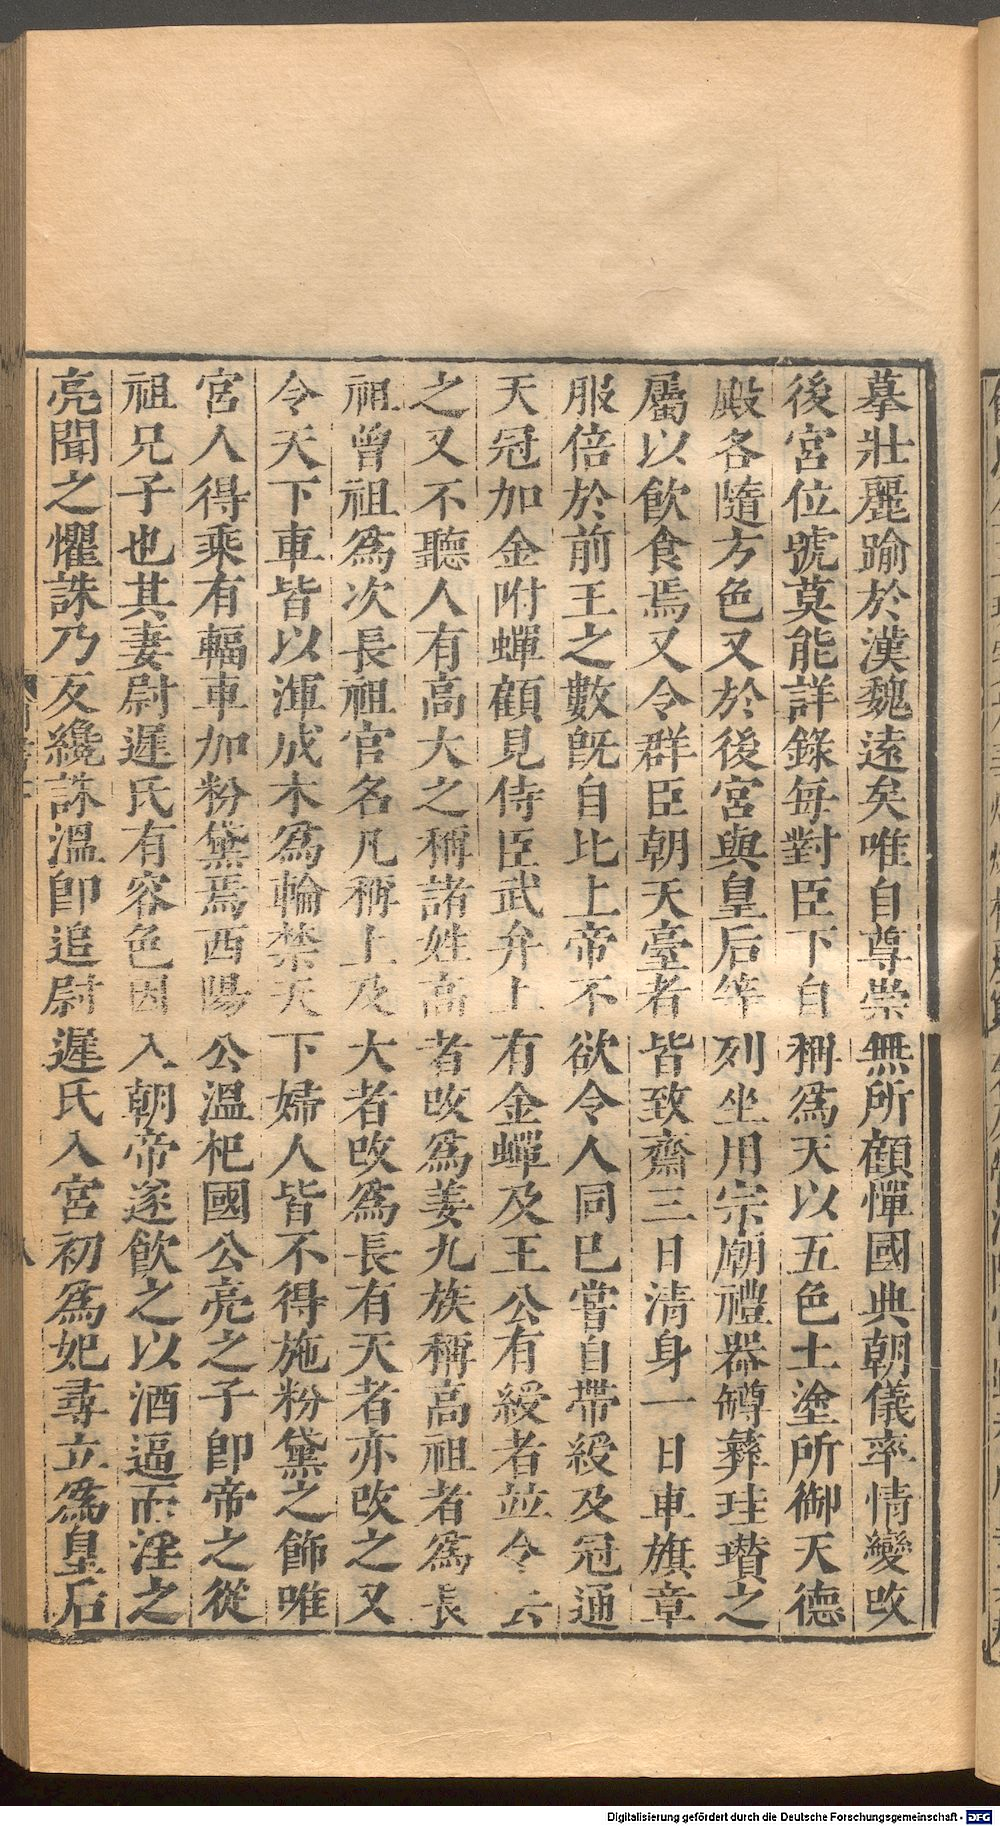 摹壯麗踰於漢魏遠矣唯自尊崇無所顧憚國典朝儀率情變改
後宮位號莫能詳錄每對臣下自稱爲天以五色土塗所御天德
殿各隨方色又於後宮與皇后等列坐用宗廟禮器罇彝珪瓚之
屬以飲食焉又令群臣朝天臺者皆致齋三日清身一日車旗章
服倍於前王之數旣自比上帝不欲令人同已嘗自帶綬及冠通
天冠加金附蟬顧見侍臣武弁上有金蟬及王公有綬者並令去
之又不聽人有高大之稱諸姓高者改爲姜九族稱高祖者爲長
祖曾祖爲次長祖官名凡稱上及大者改爲長有天者亦改之又
令天下車皆以渾成木爲輪禁天下婦人皆不得施粉黛之飾唯
宮人得乘有輻車加粉黛焉西陽公溫杞國公亮之子卽帝之從
祖兄子也其妻尉遲氏有容色因入朝帝遂飲之以酒逼而淫之
亮聞之懼誅乃反纔誅溫卽追尉遲氏入宮初爲妃尋立爲皇后
八
Digitalisierung gefördert durch die Deutsche Forschungsgemeinschaft - DFG